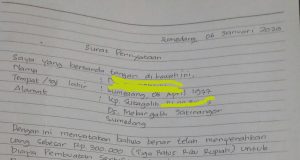 Sumedang 06 Januari 2020
Surat Pernyataan
Saya yang bertanda tangan dibawah ini,
Nama :
Tempat/tgl lahir : Sumedang 06 April 1977
Alamat : Kp. Sukagalih
Ds. Mekargalih Jatinangor
Sumedang
Dengan ini menyatakan bahwa benar telah menyerahkan
uang sebesar Rp 300.000 (Tiga Ratus Ribu Rupiah) Untuk